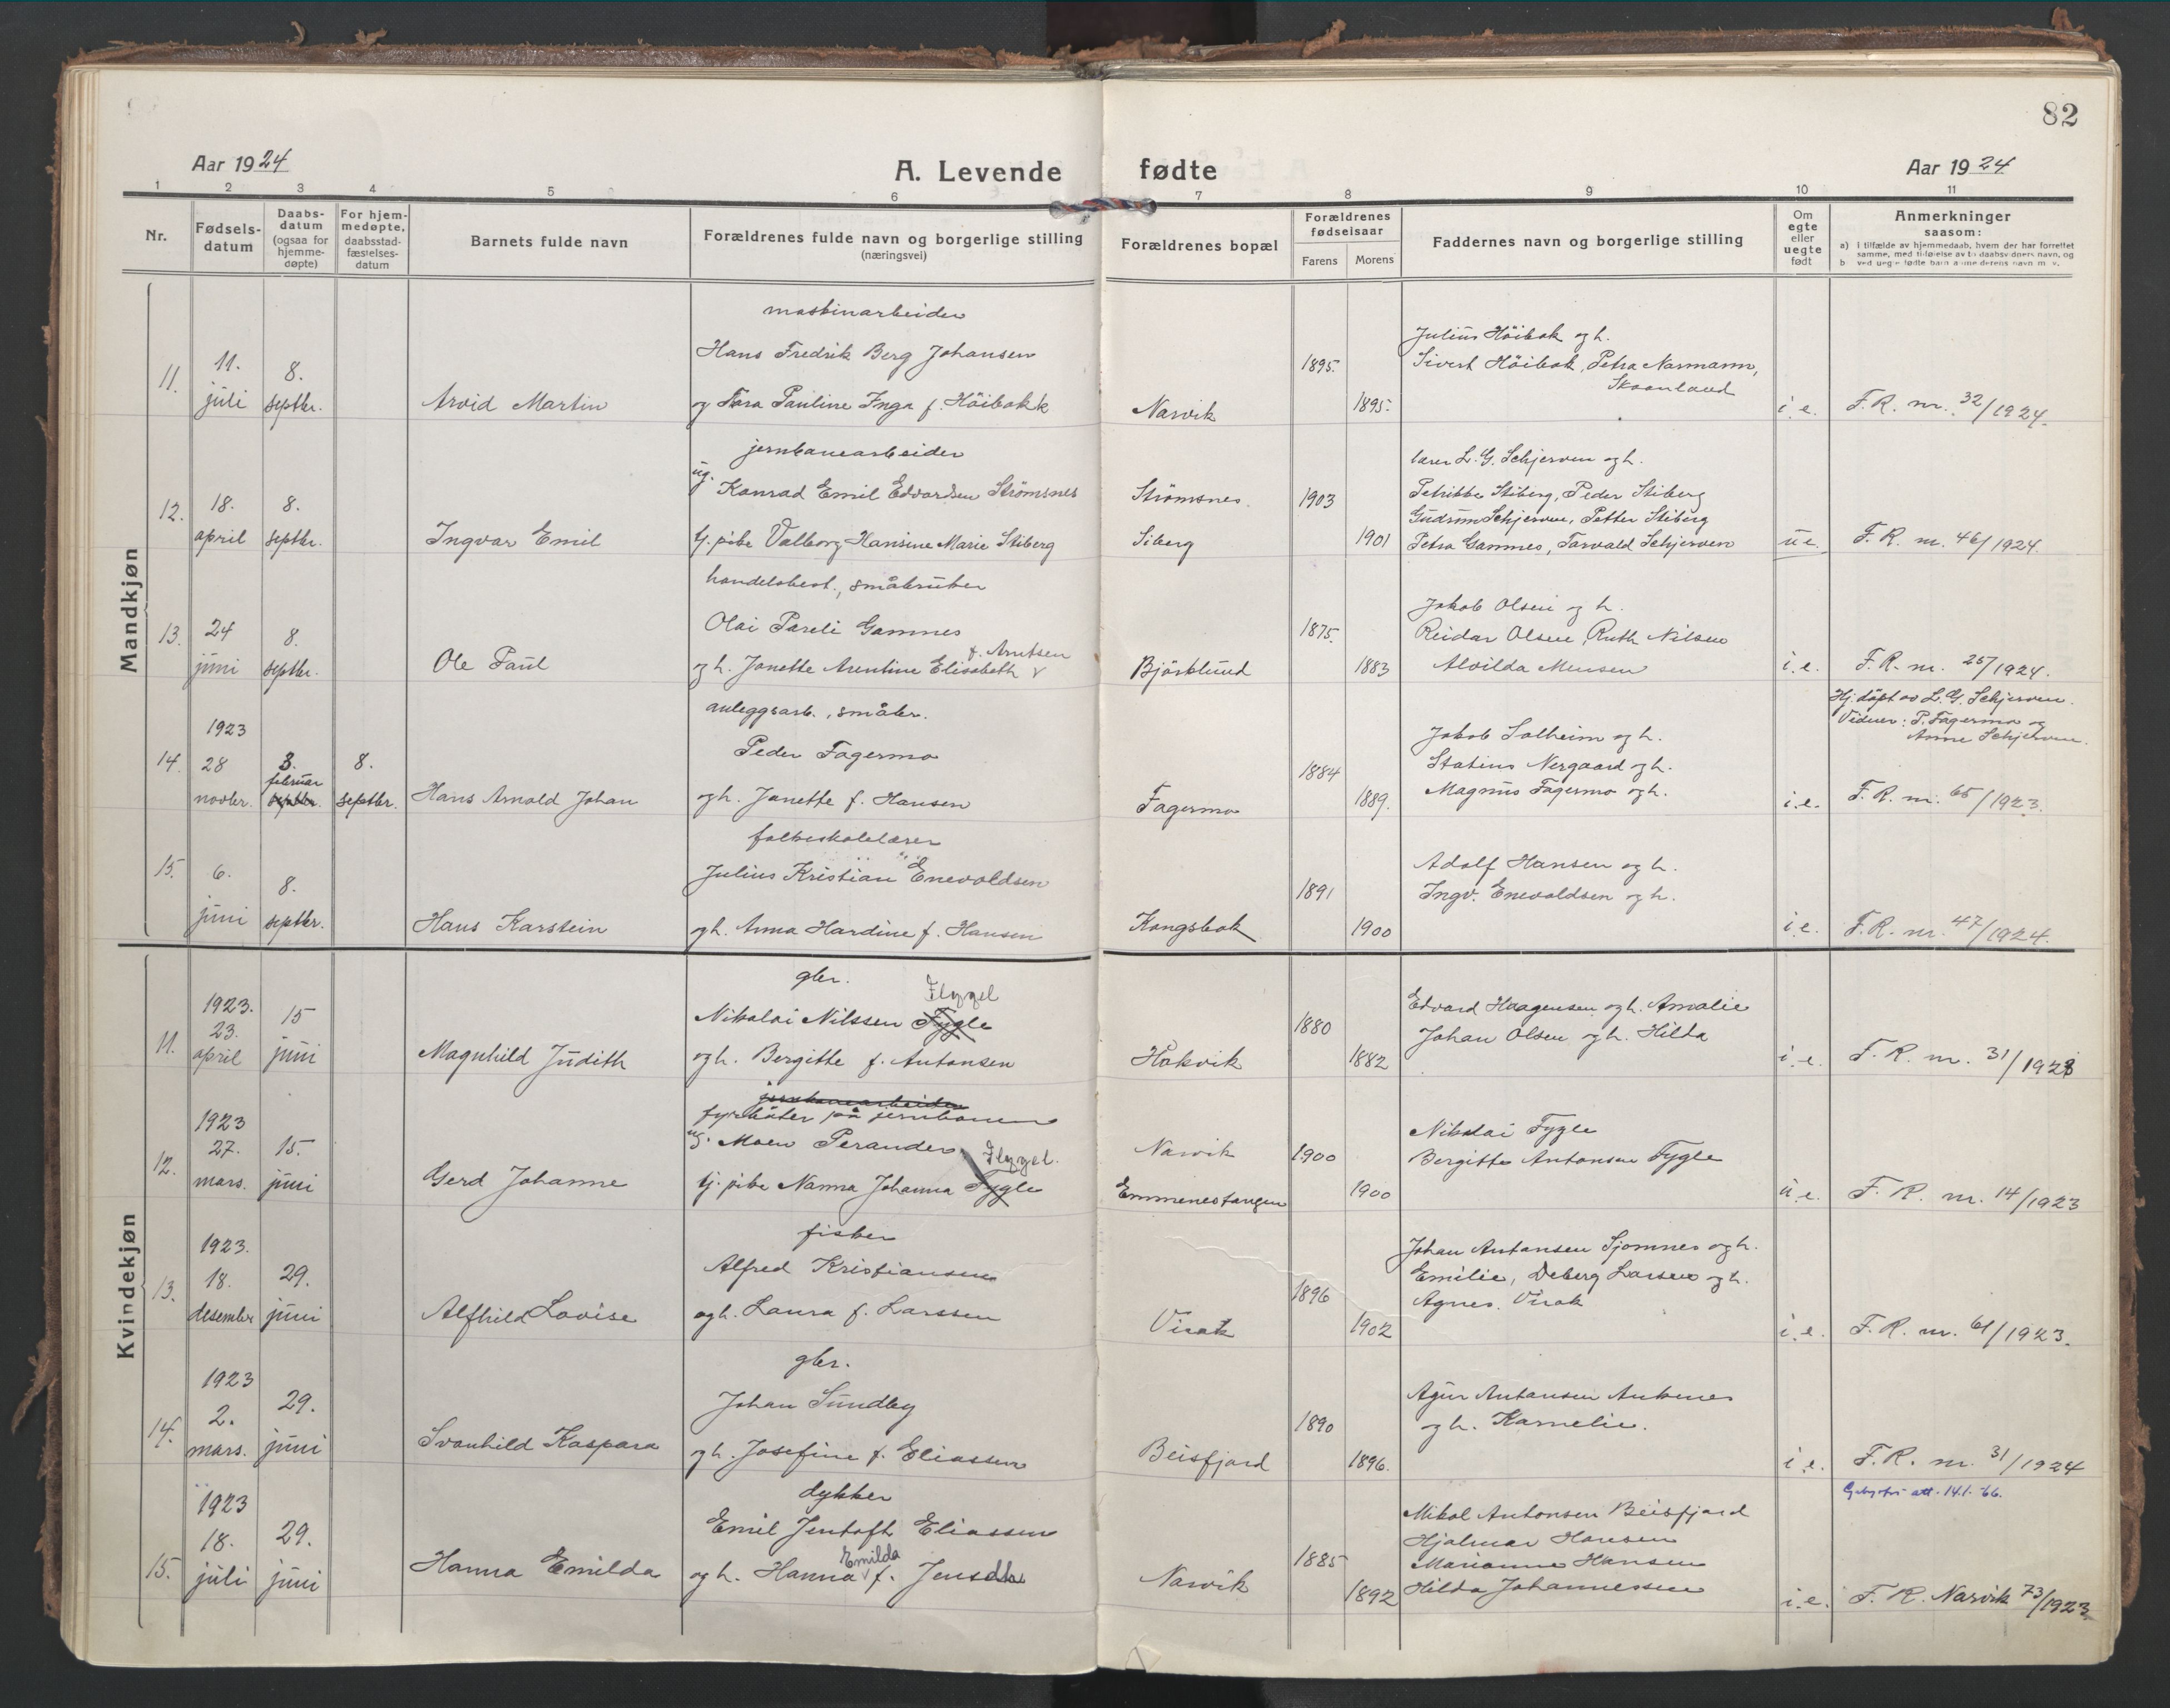 82
Aar 1924
A. Levende
fødte
Aar 1924
1 2 3 4 5 6 7 8 9 10 11
Nr.
Fødsels-
datum
Daabs-
datum
(ogsaa for
hjemme-
døpte)
For hjem-
medøpte,
daabsstad-
fæstelses-
datum
Barnets fulde navn
Forældrenes fulde navn og borgerlige stilling
(næringsvei)
Forældrenes bopæl
Forældrenes
fødselsaar
Farens
Morens
Faddernes navn og borgerlige stilling
Om
egte
eller
uegte
født
Anmerkninger
saasom:
a) i tilfælde av hjemmedaab, hvem der har forrettet
samme, med tilføielse av to daabsvidners navn, og
b ved uegte fødte barn
Mandkjøn
11.
11.
juli
8.
septbr.
Arvid Martin
maskinarbeider
Hans Fredrik Berg Johansen
og Tora Pauline Inga f. Höibakk
Narvik
1895.
1895.
Julius Höibak og h.
Sivert Höibak, Petra Normann,
Skaanland
i. e.
F. R. nr. 32/1924.
12.
18.
april
8.
septbr.
Ingvar Emil
jernbanearbeider
ug. Konrad Emil Edvardsen Strömsnes
tj. pike Valborg Hansine Marie Stiberg
Strömsnes.
Siberg
1903
1901
lærer L. G. Schjerven og h.
Petrikke Stiberg, Peder Stiberg
Gudrun Schjerven, Petter Stiberg
Petra Gamnes, Torvald Schjerven
u e.
F. R. nr. 46/1924.
13.
24
juni
8.
septbr.
Ole Paul
handelsbest., småbruker
Olai Pareli Gamnes
f. Arntsen
og h. Janette Arentine Elisabeth
Björklund
1875.
1883
Jakob Olsen og h.
Reidar Olsen, Ruth Nilsen
Alvilda Monsen
i. e.
F. R. nr. 25/1924.
14.
1923
28
novbr.
3.
februar
septbr.
8.
septbr.
Hans Arnold Johan
anleggsarb., småbr.
Peder Fagermo
og h. Janette f. Hansen
Fagermo
1884
1889.
Jakob Solheim og h.
Statius Nergaard og h.
Magnus Fagermo og h.
i. e.
Hj. döpt av L. G. Schjerven.
Vidner: P. Fagermo og
Anne Schjerven.
F. R. nr. 65/1923.
15.
6.
juni
8.
septbr.
Hans Karstein
folkeskolelærer
Julius Kristian Enevoldsen
og h. Anna Hardine f. Hansen
Kongsbak
1891
1900
Adolf Hansen og h.
Ingv. Enevoldsen og h.
i. e.
F. R. nr. 47/1924.
Kvindekjøn
11.
1923.
23.
april
15
juni
Magnhild Judith
gbr.
Flygel
Nikolai Nilssen Fygle
og h. Bergitte f. Antonsen
Hakvik
1880
1882
Edvard Haagensen og h. Amalie
Johan Olsen og h. Hilda
i. e.
F. R. nr. 31/1923
12.
1923
27.
mars.
15.
juni
Gerd Johanne
jernbanearbeider
fyrböter på jernbanen
ug. Moen Perander
Flygel.
tj. pike Nanna Johanna Fygle
Narvik
Emmenestangen
1900
1900
Nikolai Fygle
Bergitte Antonsen Fygle
u. e.
F. R. nr. 14/1923
13.
1923.
18.
desember
29.
juni
Alfhild Lovise
fisker
Alfred Kristiansen
og h. Laura f. Larssen
Virak
1896
1902
Johan Antonsen Sjomnes og h.
Emilie, Deberg Larsen og h.
Agnes. Virak
i. e.
F. R. nr. 61/1923.
14.
1923
2.
mars.
29.
juni
Svanhild Kaspara
gbr.
Johan Sundby
og h. Josefine f. Eliassen
Beisfjord
1890
1896.
Agur Antonsen Ankenes
og h. Kornelie.
i. e.
F. R. nr. 31/1924
15.
1923
18.
juli
29.
juni
Hanna Emilda
dykker
Emil Jentoft Eliassen
Emilda
og h. Hanna f.
Narvik
1885
1892
Mikal Antonsen Beisfjord
Hjalmar Hansen
Marianne Hansen
Hilda Johannessen
i. e.
att. 14.1.-66.
F. R. Narvik 73/1923